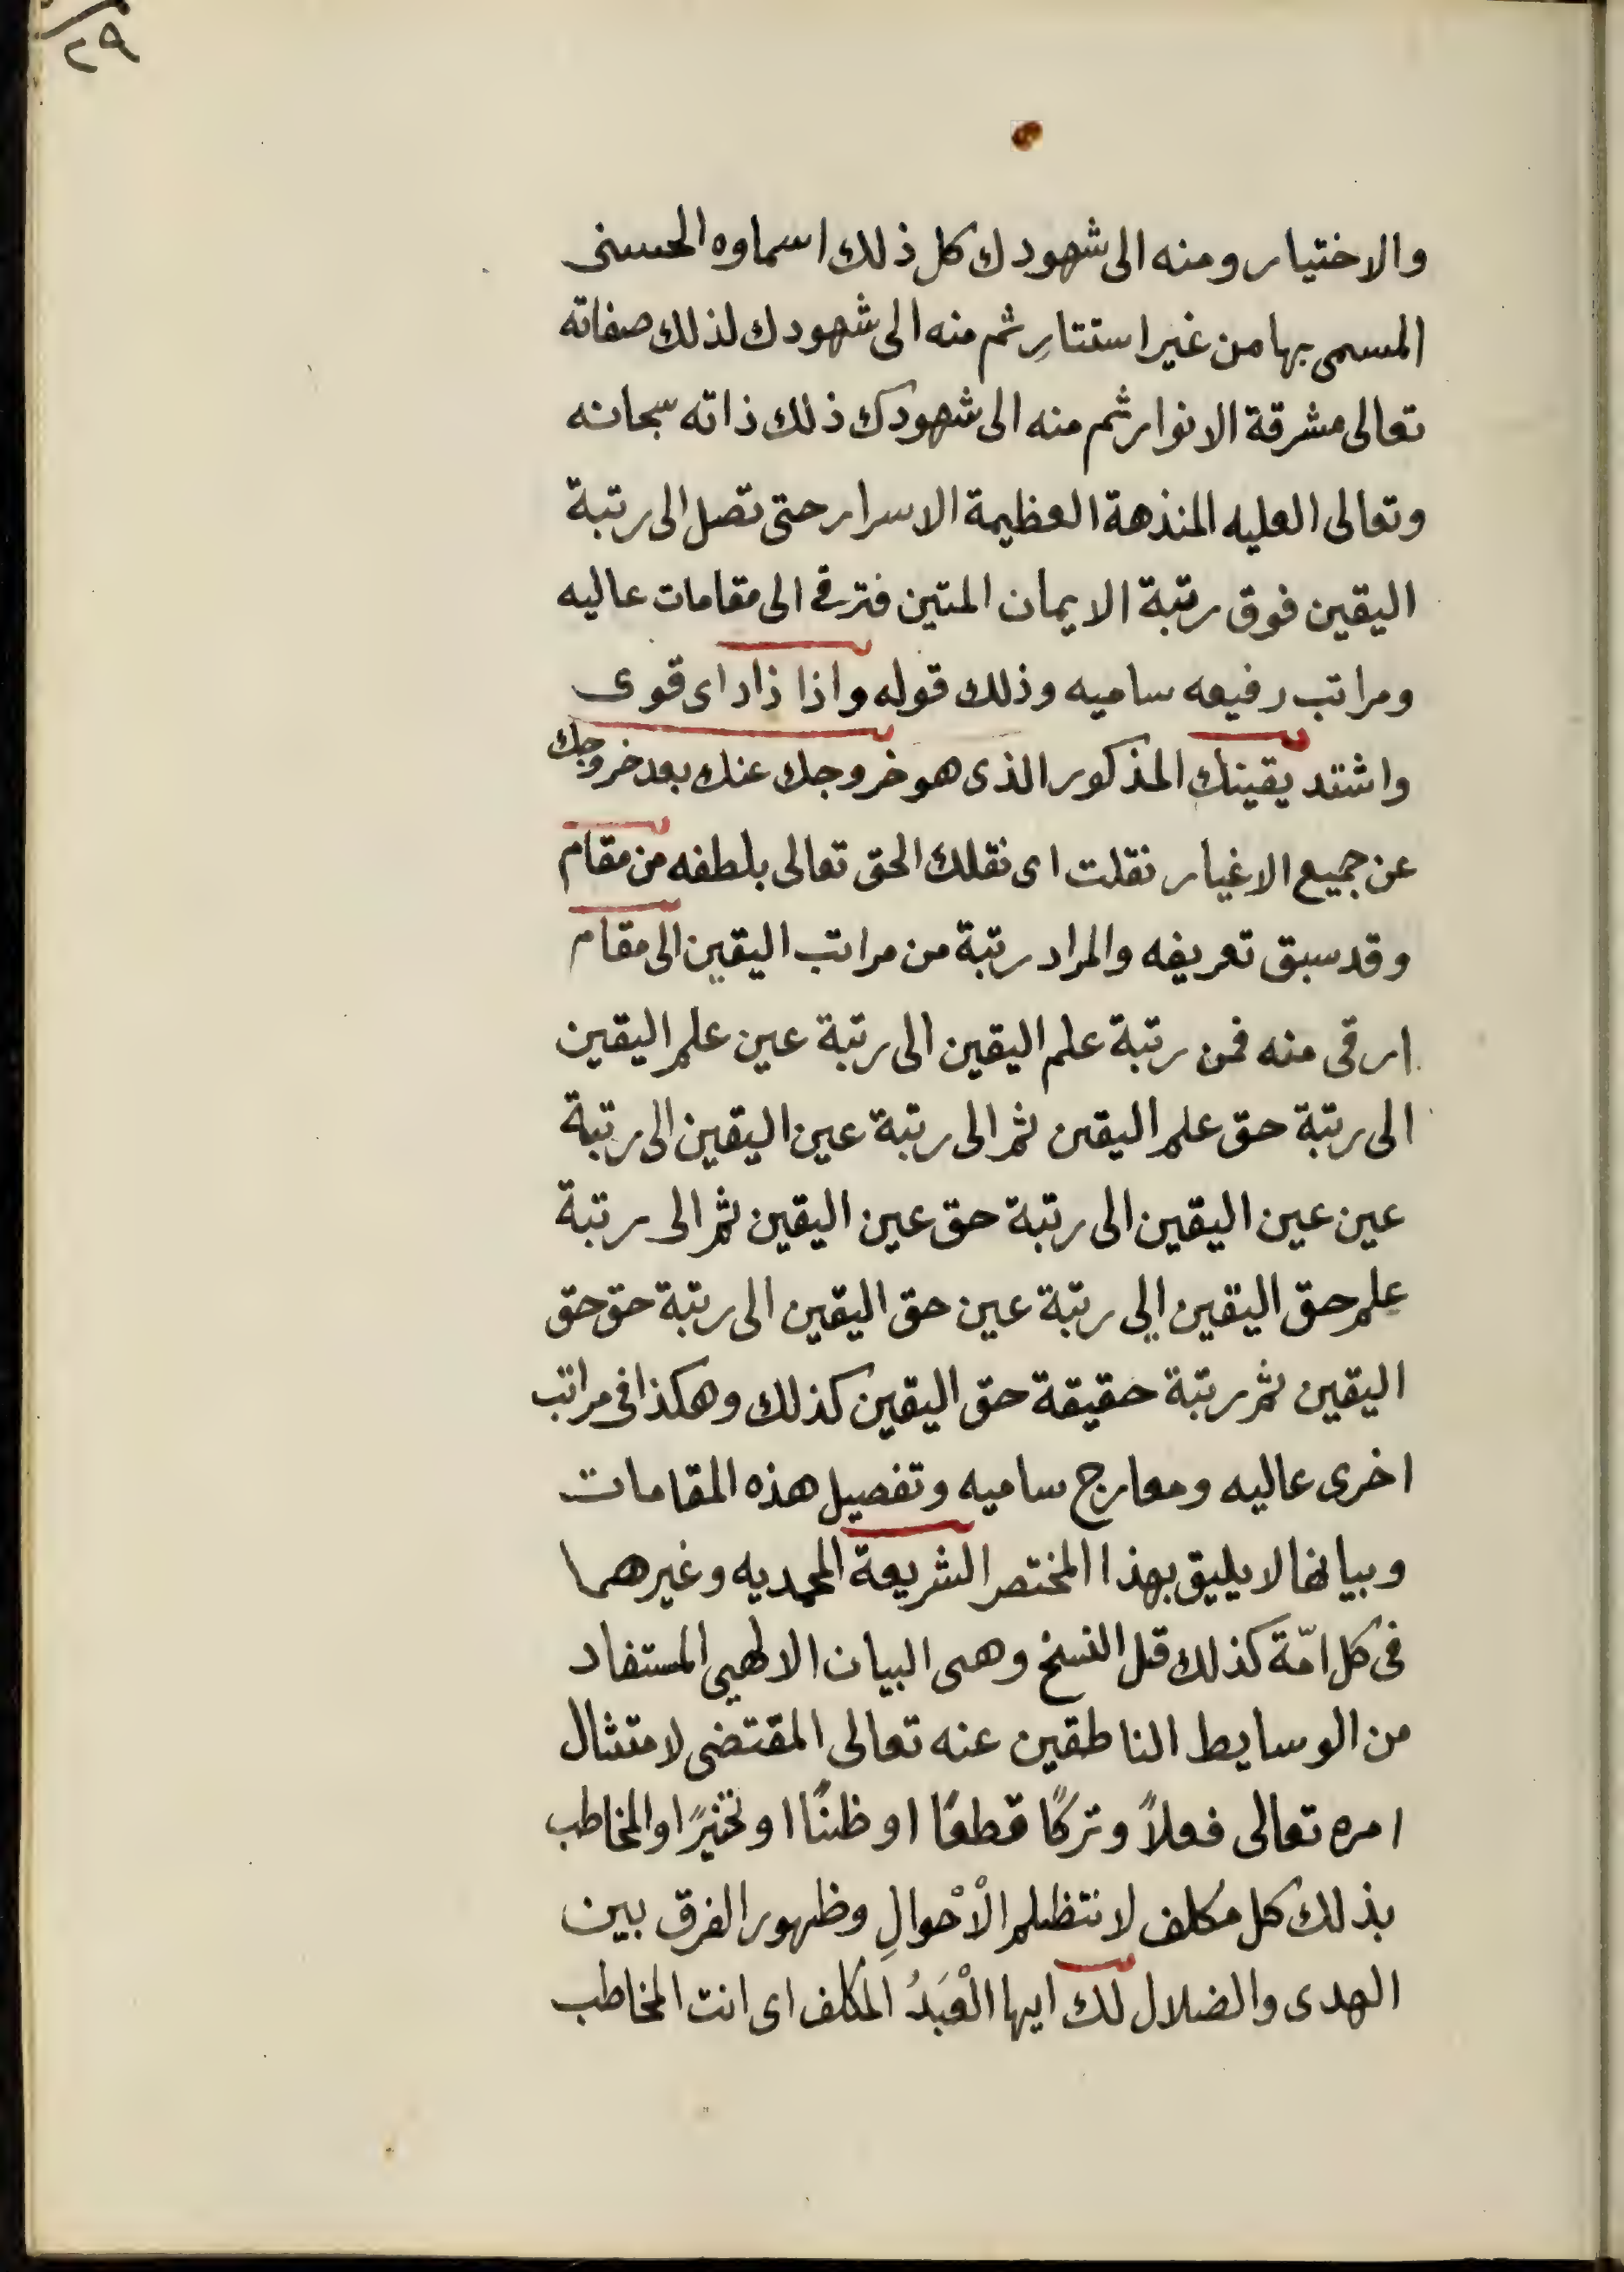 ٢٩
والاختيار ومنه الى شهودك كل ذلك اسماوه الحسنى
المسمى بها من غير استتارِ ثم منه الى شهودك لذلك صفاته
تعالى مشرقة الانوار ثم منه الى شهودك ذلك ذاته سبحانه
وتعالى العليه المنذهة العظيمة الاسرار حتى تصل الى رتبة
اليقين فوق رتبة الايمان المتين فترقى الى مقامات عاليه
ومراتب رفيعه ساميه وذلك قوله واذا زاد اى قوى
واشتد يقينك المذكور الذى هو خروجك عنك بعد خروجك
عن جميع الاغيار نقلت اى نقلك الحق تعالى بلطفه من مقام
وقد سبق تعريفه والمراد رتبة من مراتب اليقين الى مقام
ارقى منه فمن رتبة علم اليقين الى رتبة عين علم اليقين
الى رتبة حق علم اليقين ثم الى رتبة عين اليقين الى رتبة
عين عين اليقين الى رتبة حق عين اليقين ثم الى رتبة
علم حق اليقين الى رتبة عين حق اليقين الى رتبة حق حق
اليقين ثم رتبة حقيقة حق اليقين كذلك وهكذا فى مراتب
اخرى عاليه ومعارج ساميه وتفصيل هذه المقامات
وبيانها لا يليق بهذا المختصر الشريعة المحمديه وغيرها
فى كل امّة كذلك قبل النسخ وهى البيان الالهى المستفاد
من الوسايط الناطقين عنه تعالى المقتضى لامتثال
امره تعالى فعلاً وتركًا قطعًا او ظنًا او تخيرًا والمخاطب
بذلك كل مكلف لانتظام الْاَحْوالِ وظهور الفرق بين
الهدى والضلال لك ايها الْعَبَدُ المكلف اى انت المخاطب